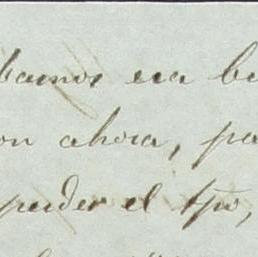 bamos era bu
on ahora, pa
perder el tpo,